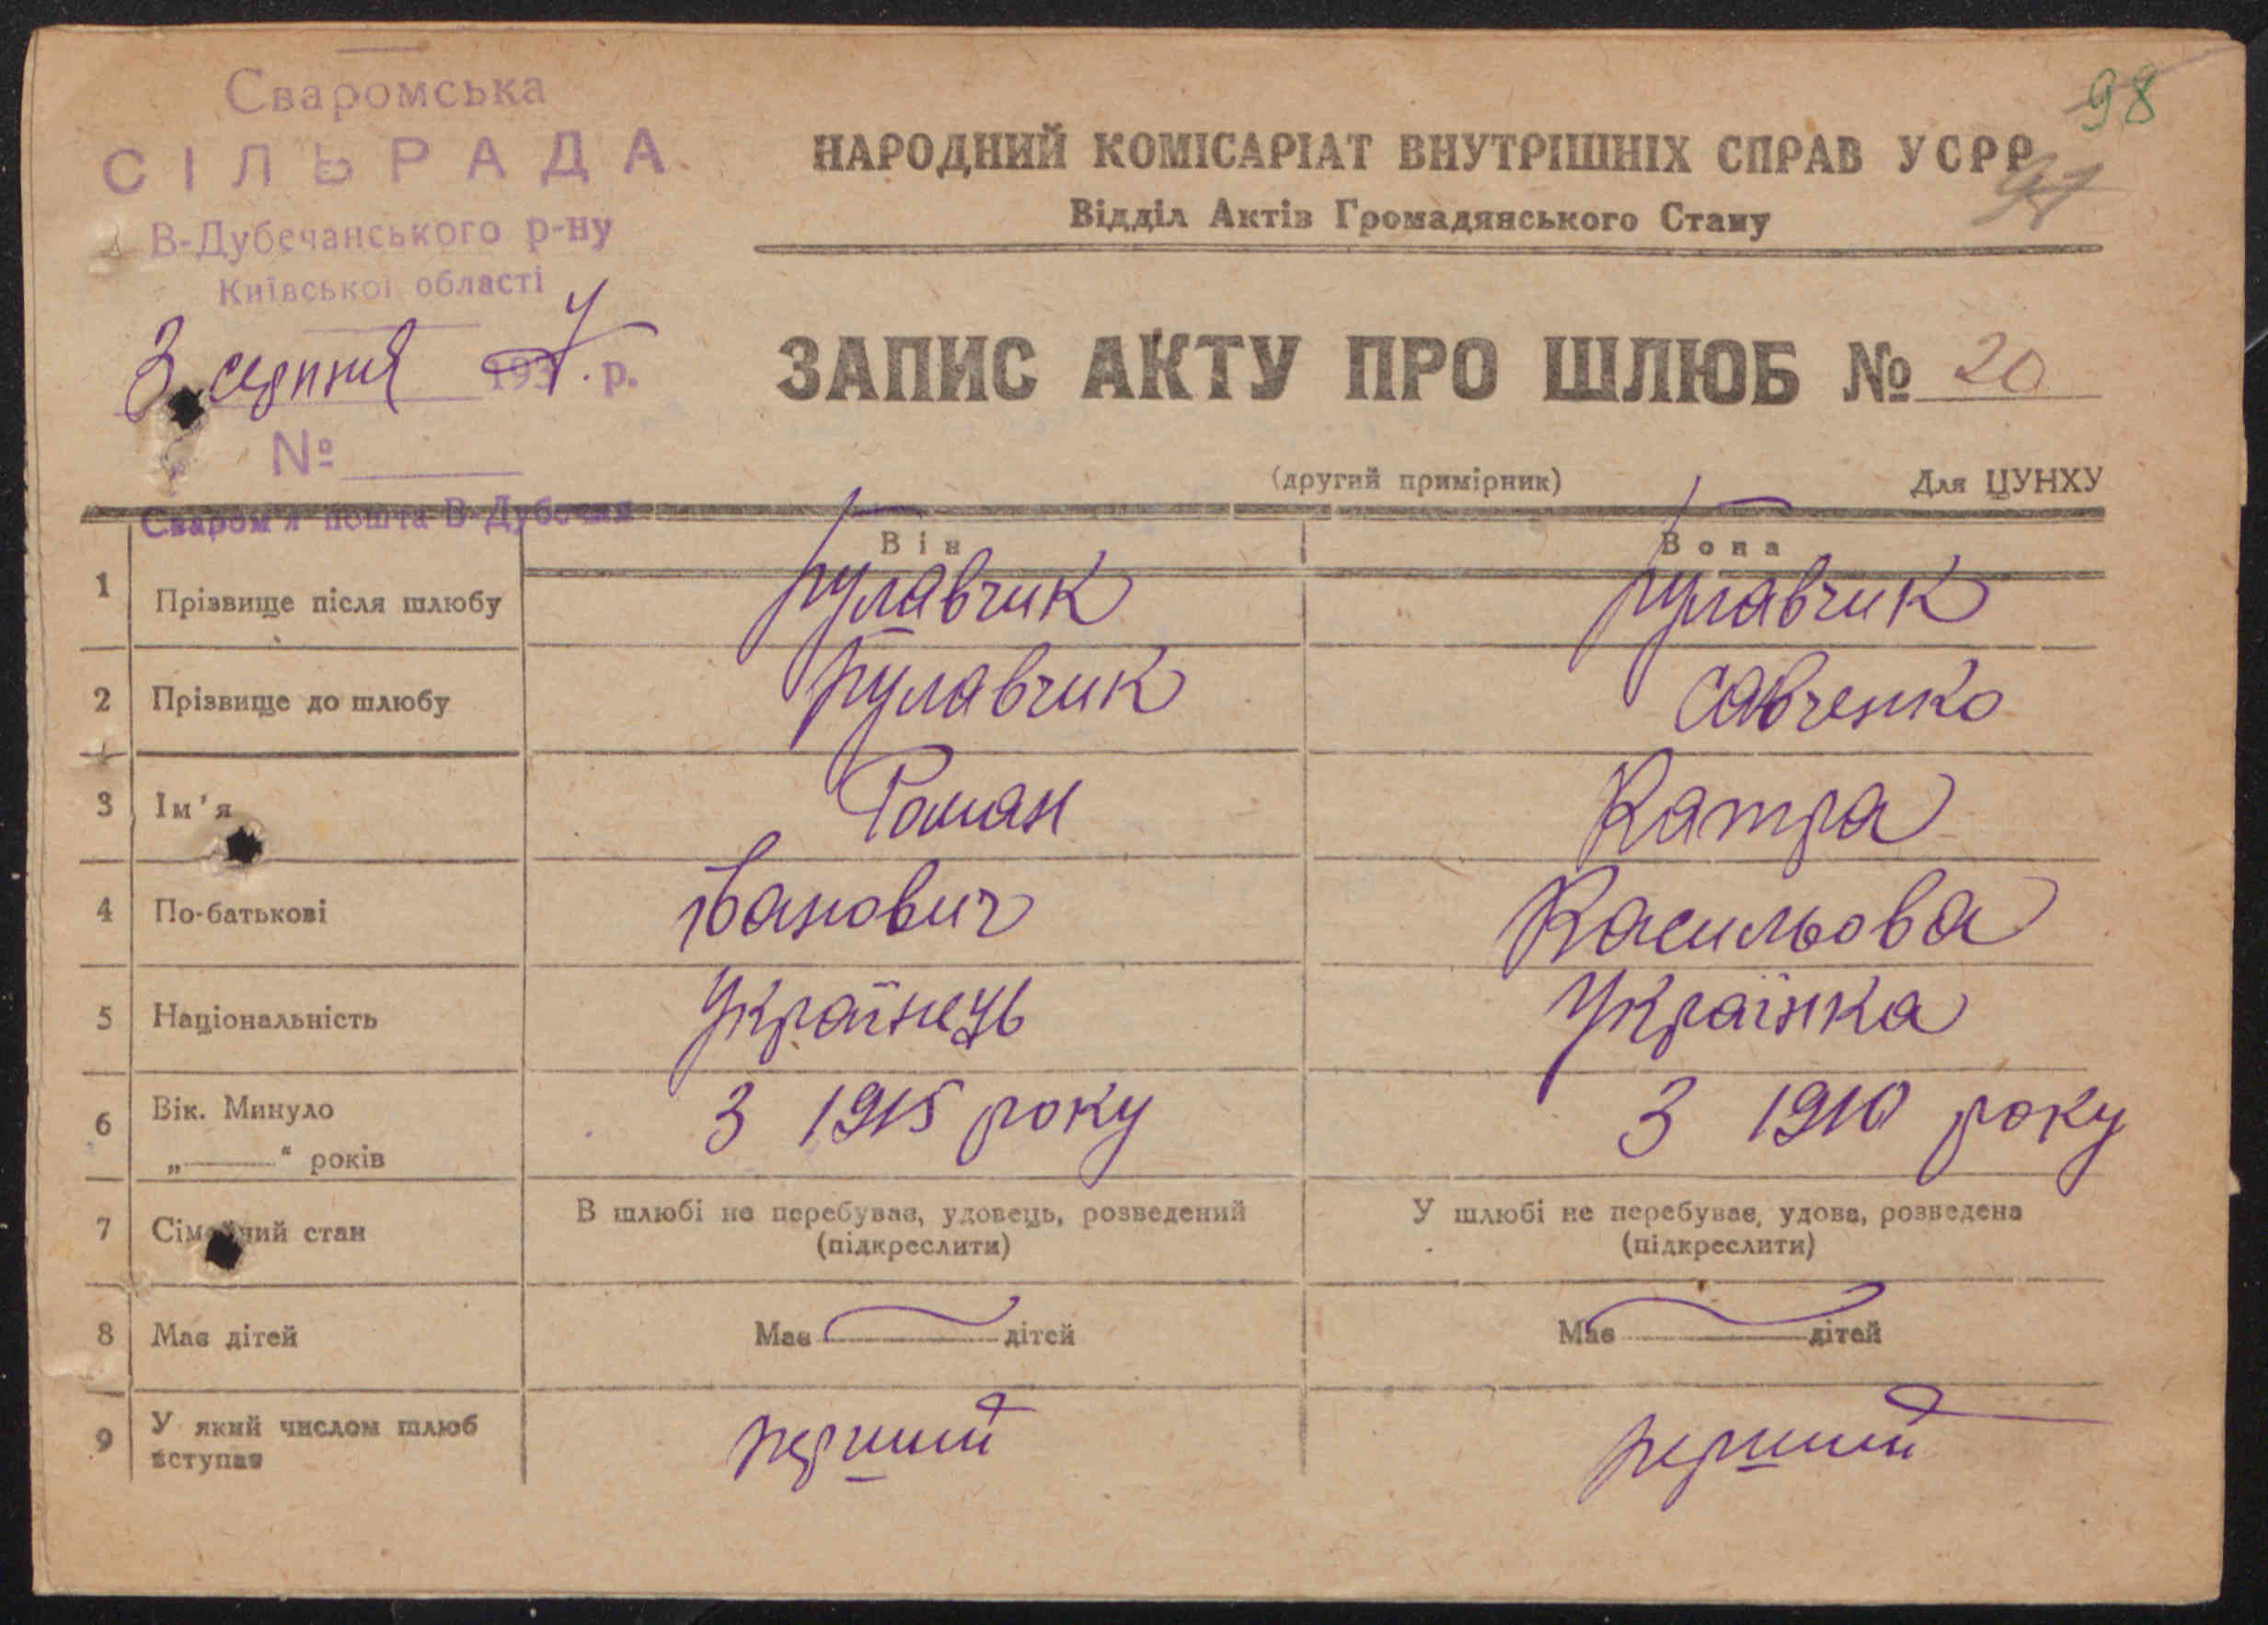 98
Сваромська
СІЛЬРАДА
В-Дубечанського р-ну
Київської області
3 серпня 193 р.
№
Сваром'я пошта В-Дубечня
НАРОДНИЙ КОМІСАРІАТ ВНУТРІШНІХ СПРАВ УСРР
97
Відділ Актів Громадянського Стану
ЗАПИС АКТУ ПРО ШЛЮБ № 20
(другий примірник) Для ЦУНХУ
Він Вона
1 Прізвище після шлюбу Рулавчик Рулавчик
2 Прізвище до шлюбу Рулавчик Савченко
3 Ім'я Роман Катра
4 По-батькові Іванович Васильова
5 Національність Українець Українка
6 Вік. Минуло З 1915 року З 1910 року
„——“ років
7 Сімейний стан В шлюбі не перебував, удовець, розведений У шлюбі не перебуває, удова, розведена
(підкреслити) (підкреслити)
8 Має дітей Має дітей Має дітей
9 У який числом шлюб перший перший
вступає